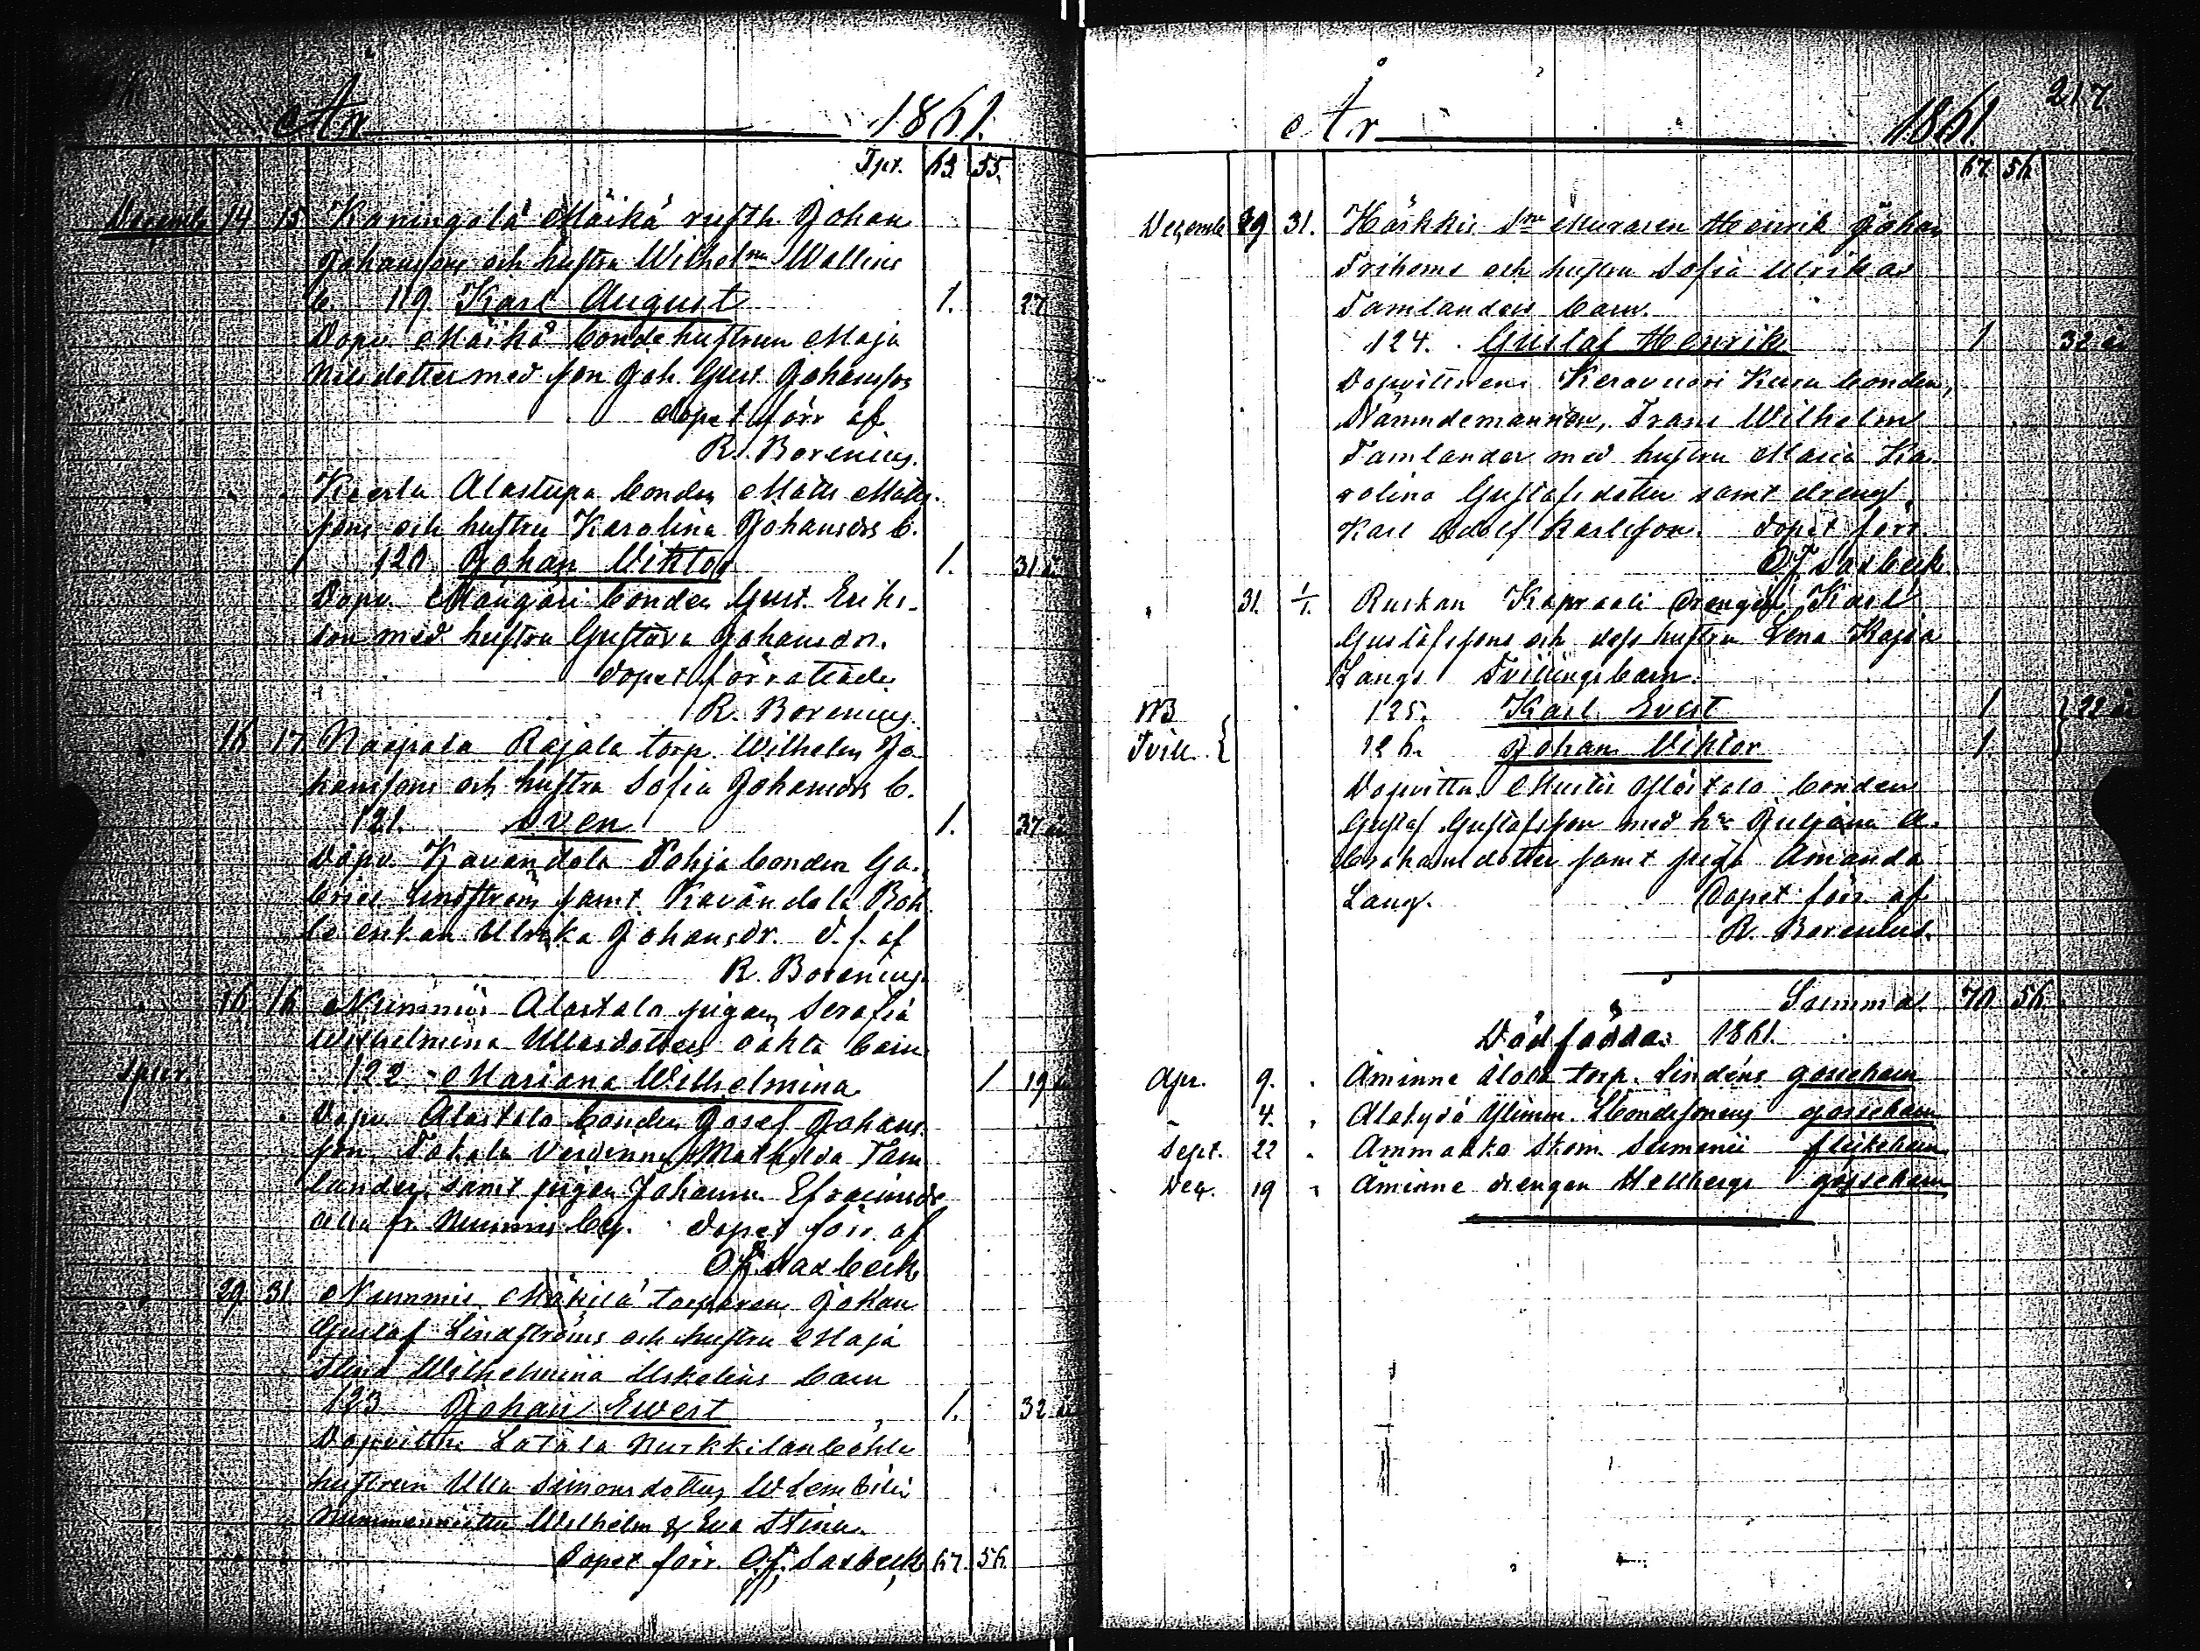 År 1861.
Tpt. 63. 55.
December 14 15 Kaningola Mäikä rusth. Johan
Johanssons och hustru Wilhelma Wallins
b. 119. Karl August 1. 27
Dopv. Mäikä bondehustrun Maja
Nilsdotter med son Joh. Gust. Johansson
dopet förr. af
R. Borenius.
" " " Kierla Alastupa bonden Matts Matts-
sons och hustru Karolina Johansdrs b.
120 Johan Viktor 1. 31 år
Dopv. bonden Gust. Eriks-
son med hustru Gustava Johansdr.
dopet förrättade
R. Borenius.
" 16 17 Naapala Rajala torp. Wilhelm Jo-
hanssons och hustru Sofia Johansdrs b.
121. Sven 1. 37 år
Dopv. Kavandola Pohja bonden Ga-
briel Lindström samt Kavandola
Ulrika Johansdr. d. f. af
R. Borenius.
" 16 16 Nummis Alastalo pigan Serafia
Wilhelmina Ullasdotters oäkta barn
Spur. 122 Mariana Wilhelmina 1 19 år
Dopv. Alastalo bonden Josef Johans-
son, Tokala Värdinnan Mathilda Tam-
lander, samt pigan Johanna Efraimsdr
alla fr. Nummis by. dopet förr. af
O.F. Saxbeck
" 29 31 Nummis Mäkilä torparen Johan
Gustaf Lindströms och hustru Maja
Stina Wilhelmina Uskelins barn
123 Johan Ewert 1. 32 år
Dopvittne Latala
hustrun Ulla Simonsdotter,
Wilhelm & Eva Stina.
Dopet förr. O.F. Saxbeck 67. 56.
År 1861. 217
67 56
Decemb. 29 31. Härkkis Murasen Henrik Johan
Frihoms och hustru Sofia Ulrikas
Tamlanders barn.
124. Gustaf Henrik 1 32 år
Dopvittnen: Keravuori bonden,
Nämndemannen, Frans Wilhelm
Tamlander med hustru Maria Ka-
rolina Gustafsdotter samt dreng
Karl Adolf Karlsson. dopet förr.
O.F. Saxbeck
" 31. 1/1. Ruskan Kapraali drengen Karl
Gustafssons och dess hustru Lena Kajsa
Langs Tvillingebarn.
NB 125. Karl Evert 1 } 22 år
Tvill. { 126. Johan Viktor 1.
Dopvittn. bonden
Gustaf Gustafsson med hu Juljana A-
brahamsdotter samt piga Amanda
Lang. Dopet förr. af
R. Borenius.
Summa 70 56
Dödfödda 1861.
Apr. 9. " Åminne Alola torp. Lindéns gossebarn
" 4. " Alakylä Ylimm. Bondesonens gossebarn
Sept. 22 " Ammakko Skom. flickebarn
Dec. 19 " Åminne drengen Hellbergs gossebarn